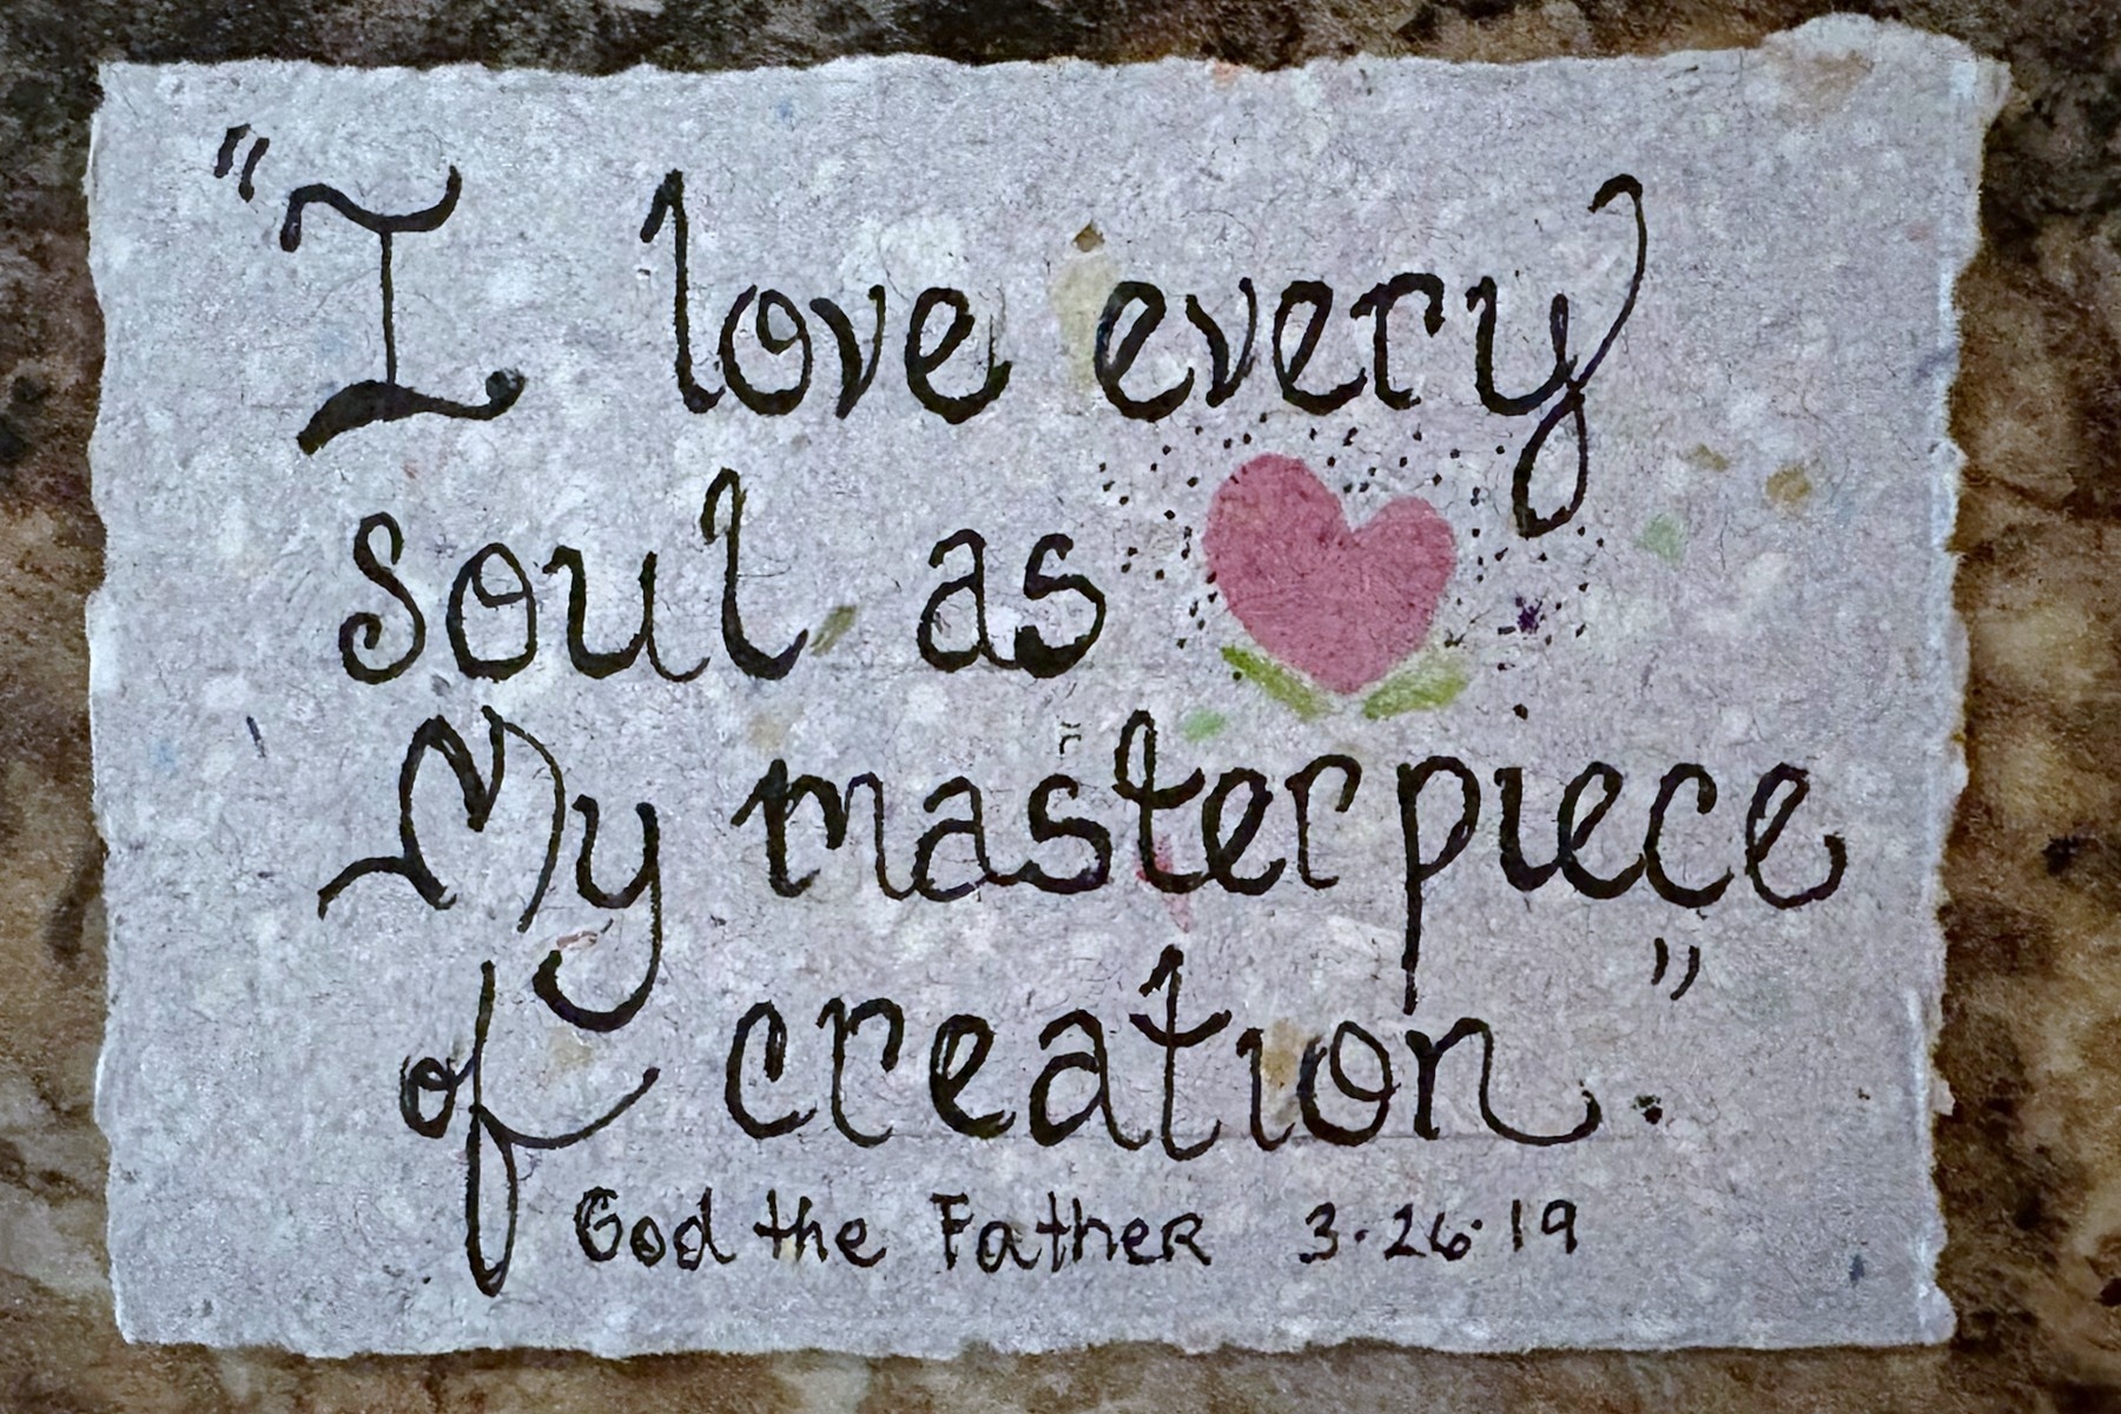 "I love every
soul as
My masterpiece
of creation."
God the Father 3-26-19